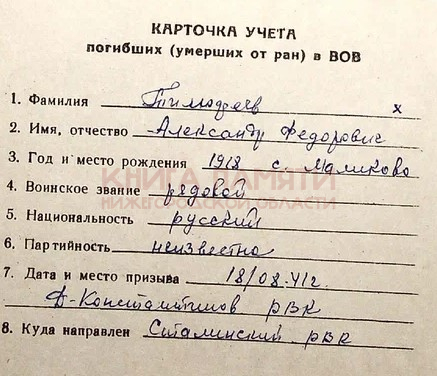 КАРТОЧКА УЧЕТА
погибших (умерших от ран) в ВОВ
1. Фамилия Тимофеев х
2. Имя, отчество Александр Федорович
3. Год и место рождения 1918 с. Маликово
КНИГА ПАМЯТИ
4. Воинское звание рядовой
НИЖЕГОРОДСКОЙ ОБЛАСТИ
5. Национальность русский
6. Партийность неизвестна
7. Дата и место призыва 18/08-41г.
Д-Константинов РВК
8. Куда направлен Сталинский РВК